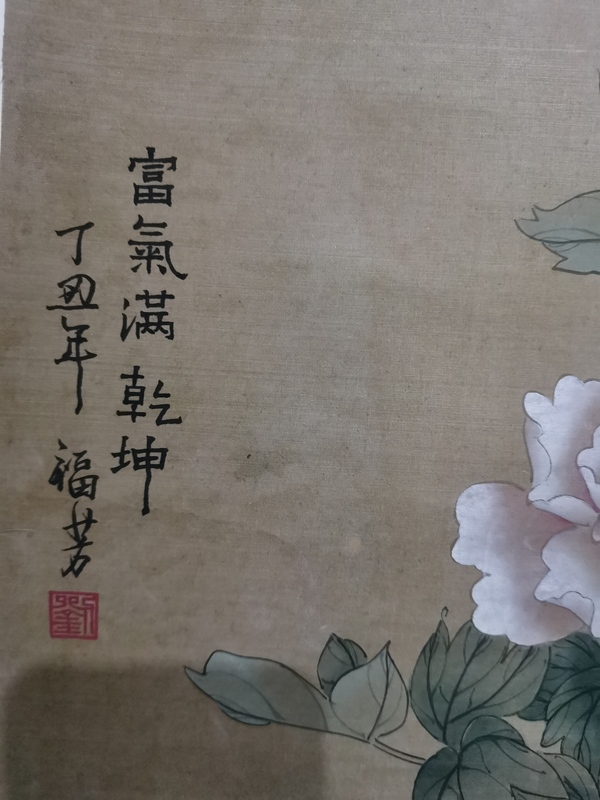 富氣滿乾坤
丁丑年 福芳
劉